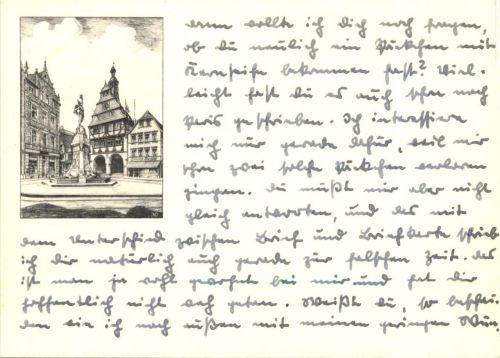 dann wollte ich Dich noch fragen,
ob Du neulich ein Päckchen mit
Kernseife bekommen hast? Viel-
leicht hast Du es auch schon nach
Paris geschrieben. Ich interessiere
mich nur gerade dafür, weil mir
schon zwei solche Päckchen verloren
gingen. Du mußt mir aber nicht
gleich antworten, und das mit
dem Unterschied zwischen Brief und Briefkarte schrieb
ich dir natürlich auch gerade zur falschen Zeit. Das
ist man ja wohl gewohnt bei mir und hat dir
hoffentlich nicht weh getan. Weißt Du, so beschei-
den wie ich nach außen mit meinen geringen Wün-